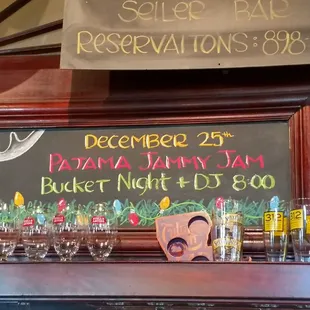 SEILER BAR
RESERVAITONS: 898
DECEMBER 25th
PATAMA JAMMY JAM
BUCKET NIGHT + DJ 8:00
312